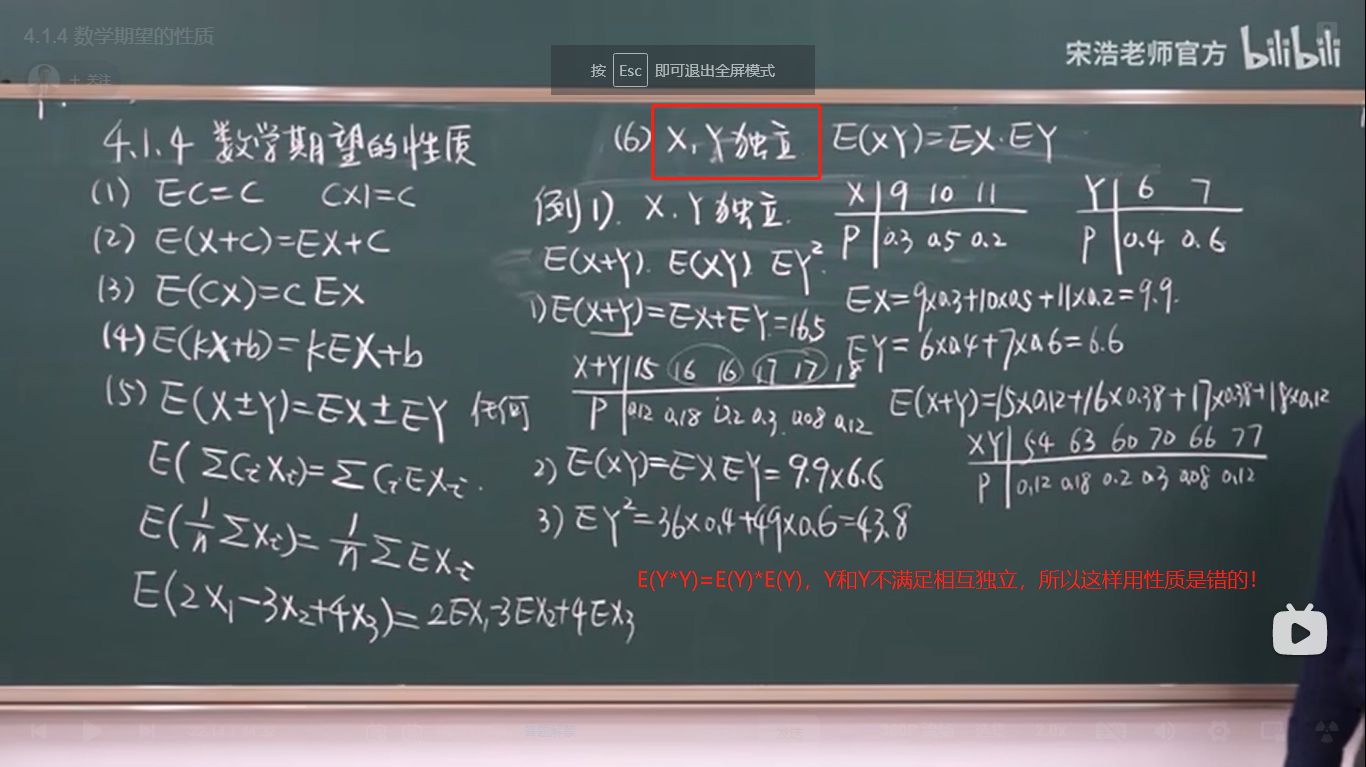 4.1.4 数学期望的性质
宋浩老师官方 bilibili
+ 关注
按 Esc 即可退出全屏模式
4.1.4 数学期望的性质
(1) EC=C C×1=C
(2) E(X+C)=EX+C
(3) E(CX)=CEX
(4) E(kX+b)=kEX+b
(5) E(X±Y)=EX±EY 任何
E(ΣCᵢXᵢ)=ΣCᵢEXᵢ.
E(1/n ΣXᵢ)=1/n ΣEXᵢ
E(2X₁-3X₂+4X₃)=2EX₁-3EX₂+4EX₃
(6) X,Y独立 E(XY)=EX·EY
例1). X.Y独立.
E(X+Y). E(XY) EY².
1) E(X+Y)=EX+EY=16.5
X+Y 15 16 16 17 17 18
P 0.12 0.18 0.2 0.3 0.08 0.12
2) E(XY)=EXEY=9.9×6.6
3) EY²=36×0.4+49×0.6=43.8
X 9 10 11
P 0.3 0.5 0.2
Y 6 7
P 0.4 0.6
EX=9×0.3+10×0.5+11×0.2=9.9.
EY=6×0.4+7×0.6=6.6
E(X+Y)=15×0.12+16×0.38+17×0.38+18×0.12
XY 54 63 60 70 66 77
P 0.12 0.18 0.2 0.3 0.08 0.12
E(Y*Y)=E(Y)*E(Y)，Y和Y不满足相互独立，所以这样用性质是错的！